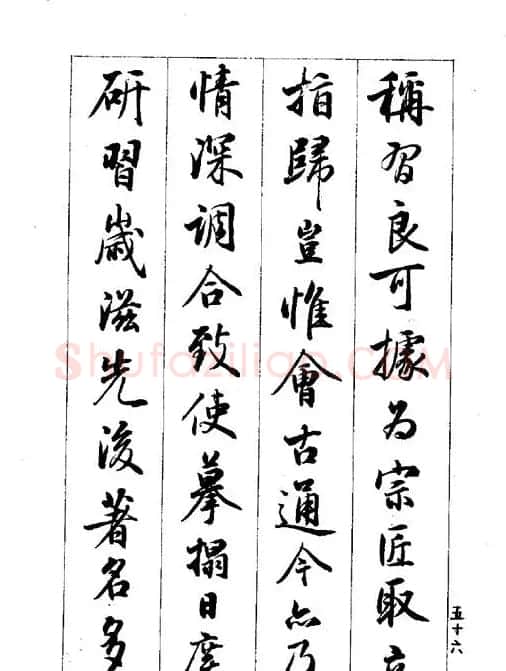 稱習良可據為宗匠取
指歸豈惟會古通今亦乃
情深調合致使摹搨日
研習歲滋先後著名多
五十六
Shufaziliao.COM